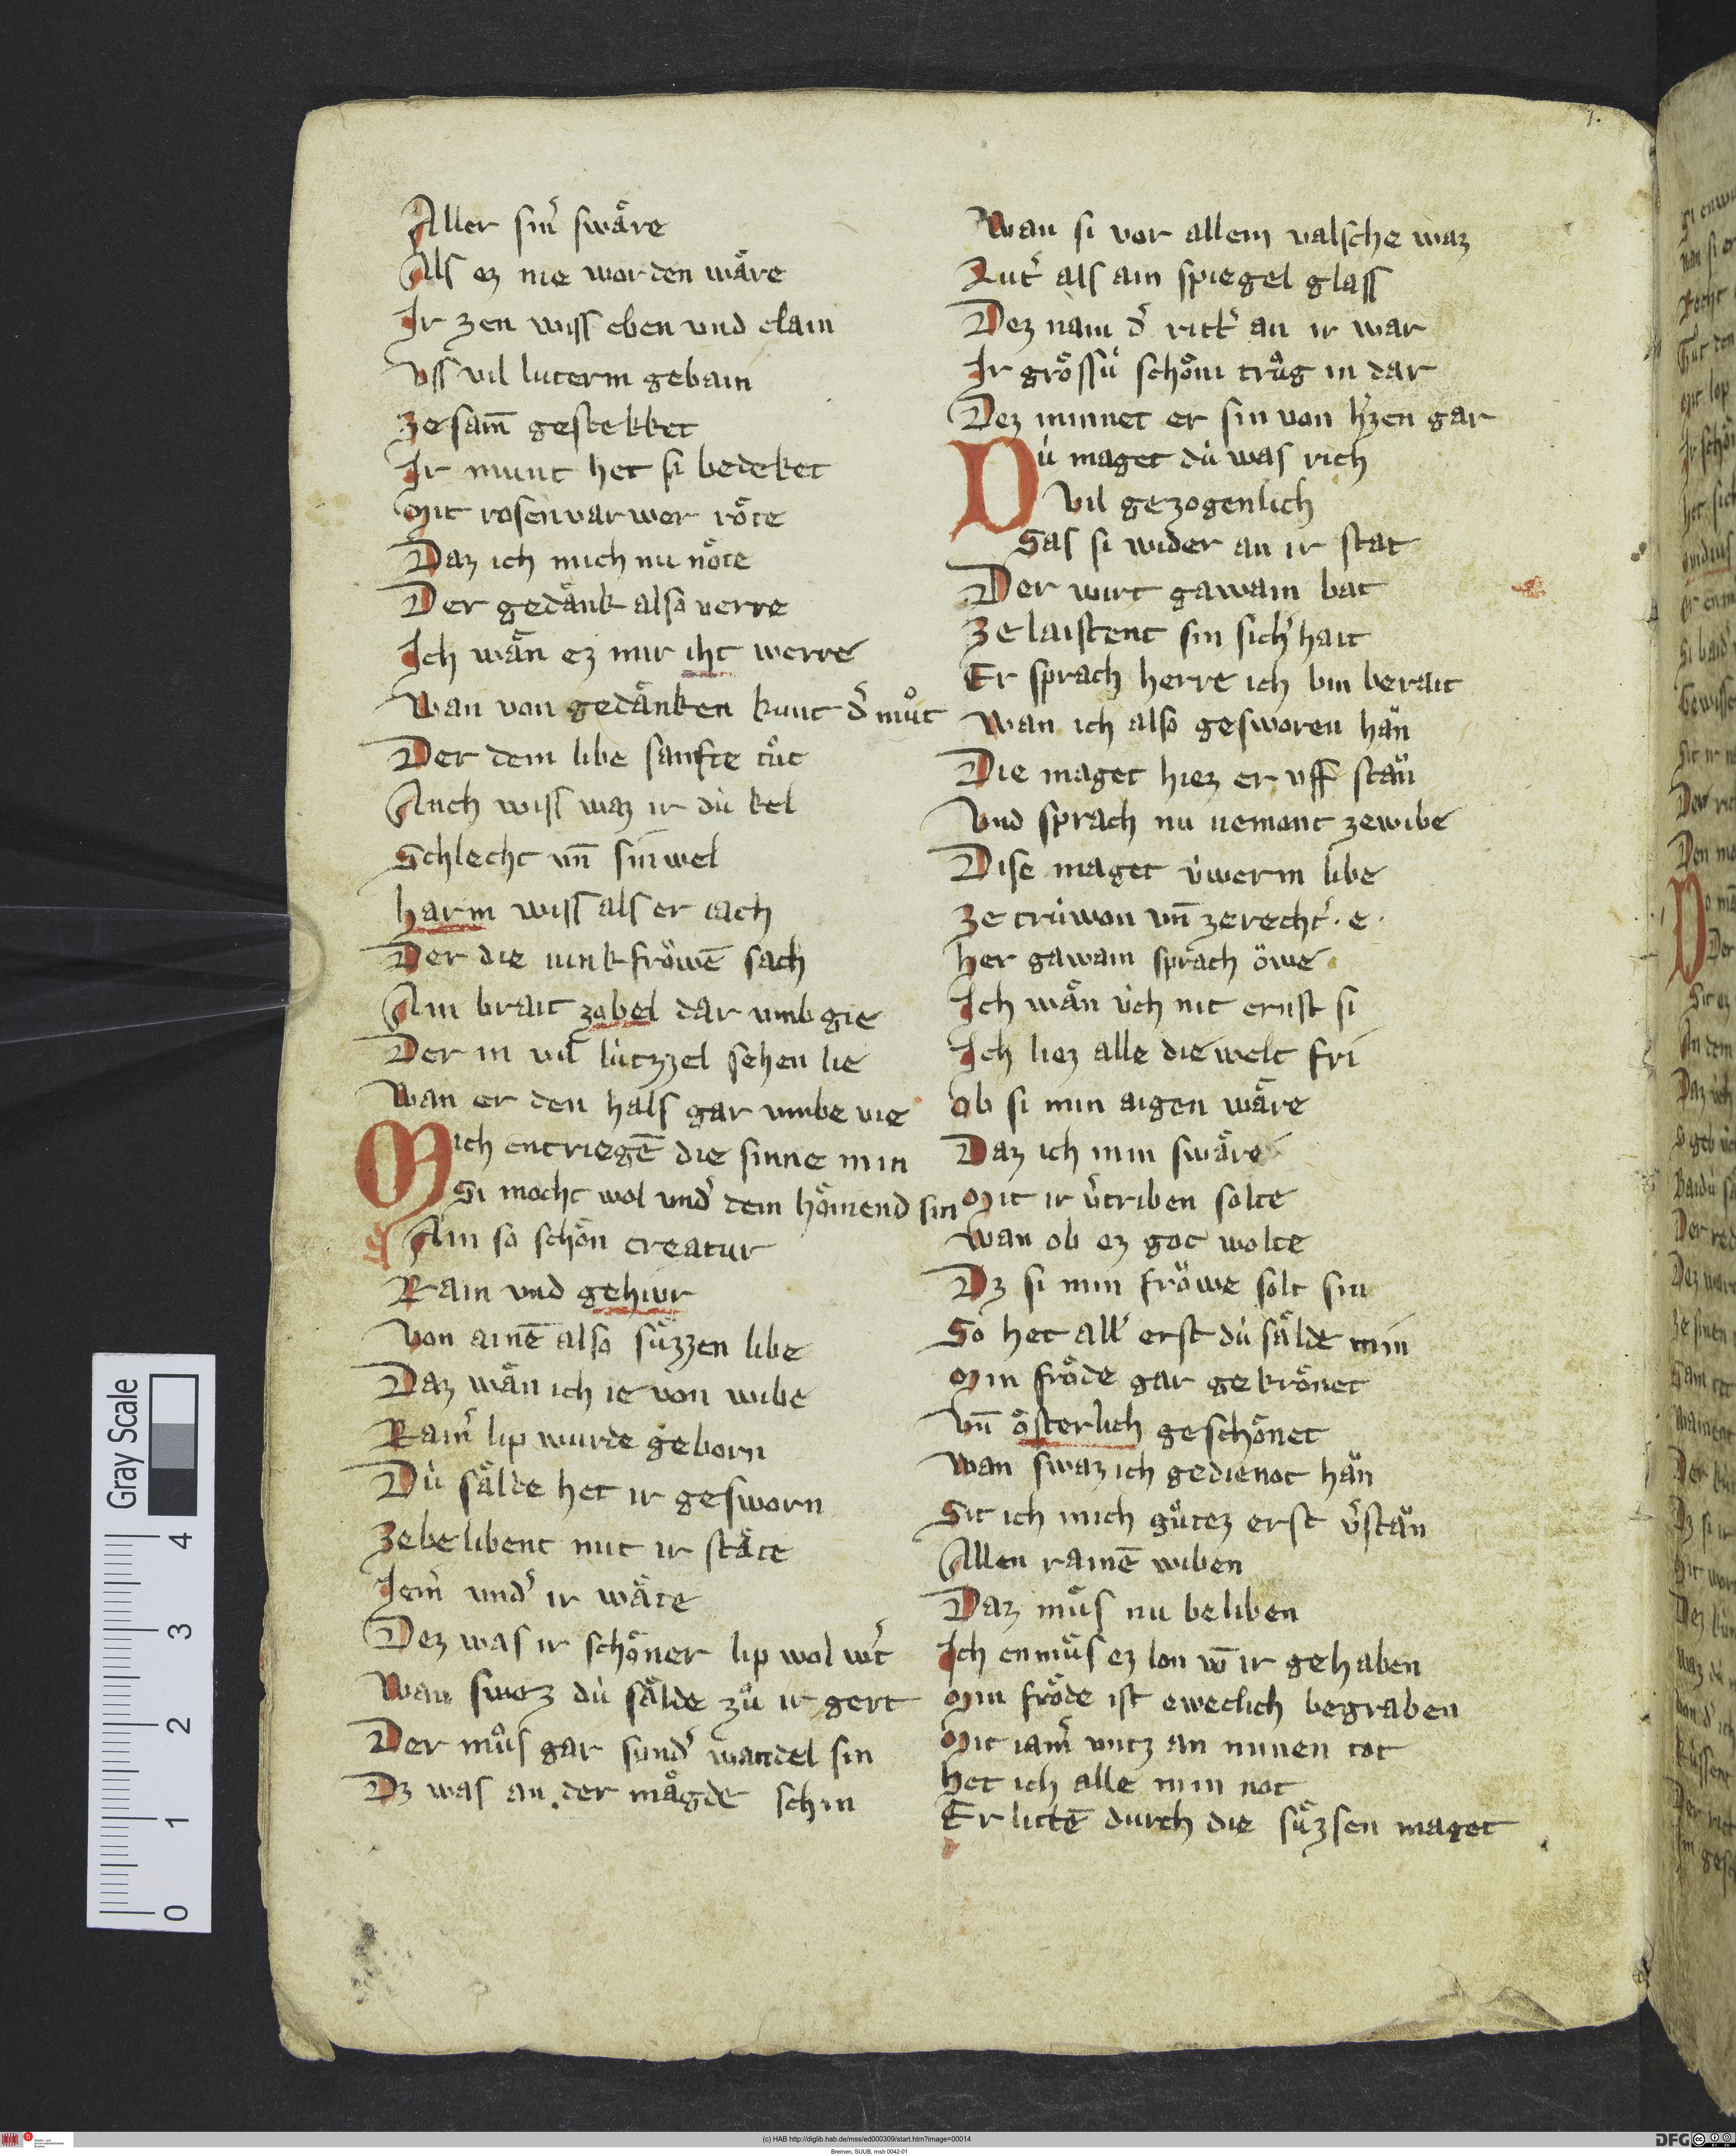 7.
Aller sin͛ swaͤre
Als ez nie worden waͤre
Ir zen wiss eben vnd clain
Vss vil luterm gebain
Zesam̄ gestekket
Ir munt het si bedeket
Mit rosenvarwer roͤte
Daz ich mich nu noͤte
Der gedaͤnk also verre
Ich waͤn ez mir iht werre
Wan von gedaͤnken kunt d͛ muͦt
Der dem libe sanfte tuͦt
Auch wiss waz ir du̍ kel
Schlecht vn̄ sinwel
harm wiss als er iach
Der die iunkfroͤwē sach
Ain brait zobel dar vmb gie
Der in vil lu̍tzzel sehen lie
Wan er den hals gar vmbe vie
Mich entriegē die sinne min
Si mocht wol vnd͛ dem hoͤmend sin
Ain so schoͤn creatur
Rain vnd gehiur
Von ainē also suͤzzen libe
Daz waͤn ich ie von wibe
Rain͛ lip wurde geborn
Du̍ saͤlde het ir gesworn
Zebelibent mit ir staͤte
Iem͛ vnd͛ ir waͤte
Dez was ir schoͤner lip wol w͛t
Wan swez du̍ saͤlde zuͦ ir gert
Der muͦs gar sund͛ wandel sin
Dz was an der maͤgde schin
Wan si vor allem valsche waz
Lut͛ als ain spiegel glass
Dez nam d͛ ritt͛ an ir war
Ir groͤssu̍ schoͤni truͦg in dar
Dez minnet er sin von h͛zen gar
Du̍ maget du̍ was rich
Vil gezogenlich
Sas si wider an ir stat
Der wirt gawain bat
Ze laistent sin sich͛hait
Er sprach herre ich bin berait
Wan ich also gesworen haͤn
Die maget hiez er vff staͤn
Vnd sprach nu nemont zewibe
Dise maget u̍werm libe
Ze tru̍won vn̄ zerecht͛ · e ·
Her gawain sprach ŏwe
Ich waͤn u̍ch nit ernst si
Ich liez alle die welt fri
Ob si min aigen waͤre
Daz ich min swaͤre
Mit ir v͛triben solte
Wan ob ez got wolte
Dz si min froͤwe solt sin
So het all͛ erst du̍ saͤlde min
Min froͤde gar gekroͤnet
Vn̄ oͤsterlich geschoͤnet
Wan swaz ich gedienot haͤn
Sit ich mich guͦtez erst v͛staͤn
Allen rainē wiben
Daz muͦs nu beliben
Ich enmuͤs ez lon vō ir gehaben
Min froͤde ist eweclich begraben
Mit iam͛ vntz an minen tot
Het ich alle min not
Er littē durch die suͤzsen maget
Gray Scale
4
3
2
1
0
(c) HAB http://diglib.hab.de/mss/ed000309/start.htm?image=00014
Bremen, SUUB, msb 0042-01
DFG